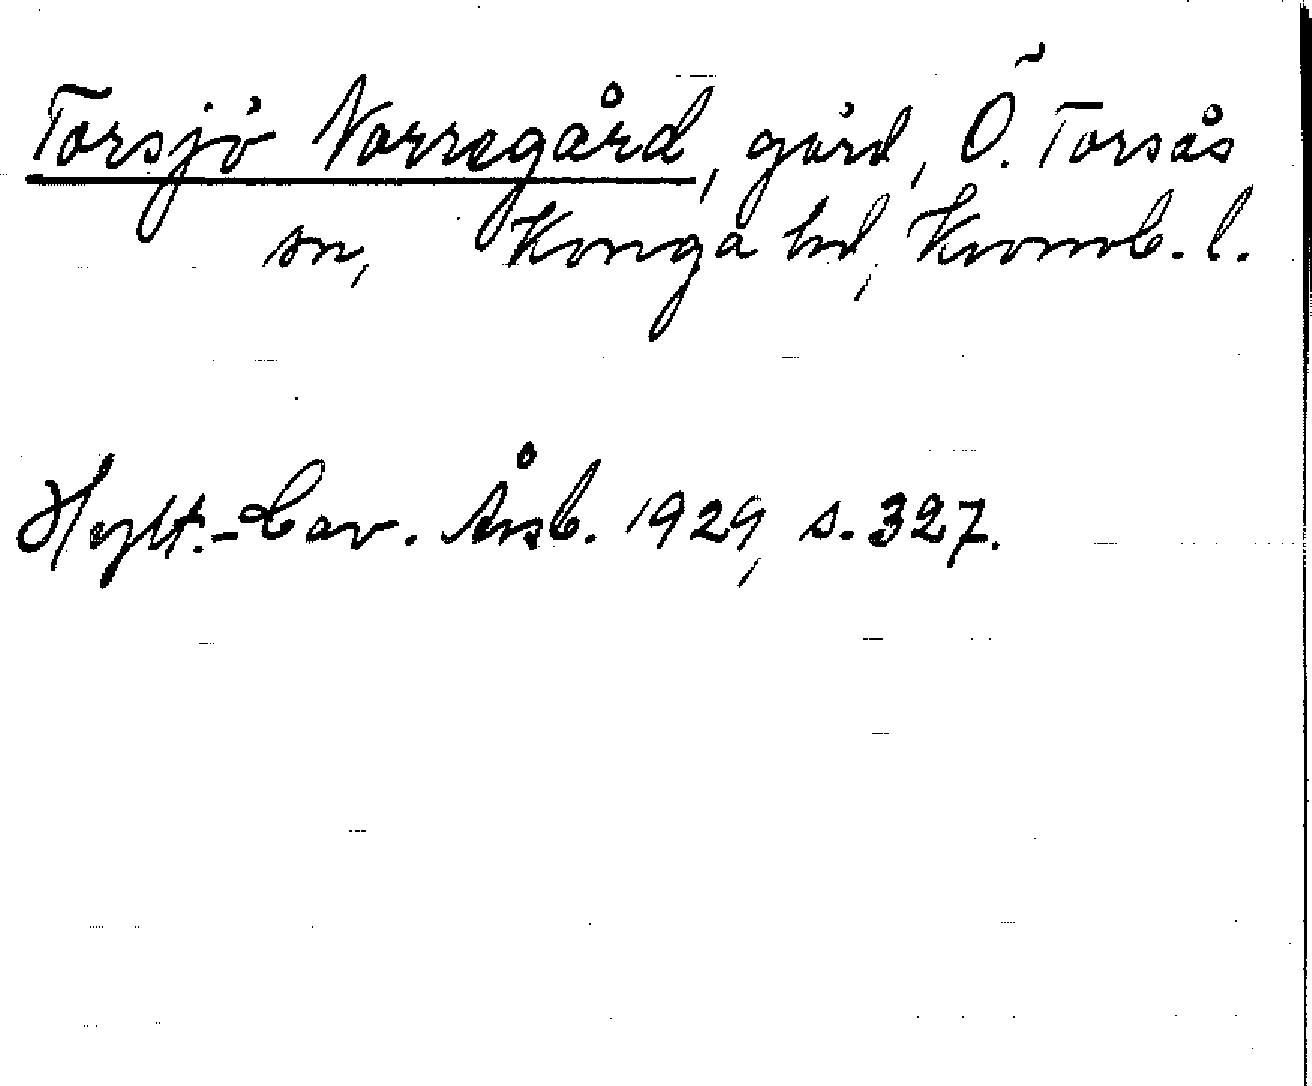 Torsjö Norregård, gård, Ö. Torsås
sn, Konga hd, Kronob. l.
Hylt.-Cav. Årsb. 1929, s. 327.